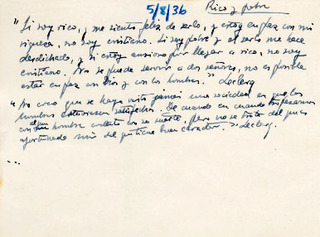 5/8/36
Rico y pobre
"Si soy rico, y me siento feliz de serlo, y estoy en paz con mi
riqueza, no soy cristiano. Si soy pobre y el serlo me hace
desdichado, y si estoy ansioso por llegar a rico, no soy
cristiano. No se puede servir a dos señores, no es posible
estar en paz con Dios y con los hombres." Leclerq
"No creo que se haya visto jamás una sociedad en que los
hombres estuviesen satisfechos. De cuando en cuando tropezamos
con algún hombre contento con su suerte, pero no se trata del más
afortunado sino del que tiene buen " Leclerq
...